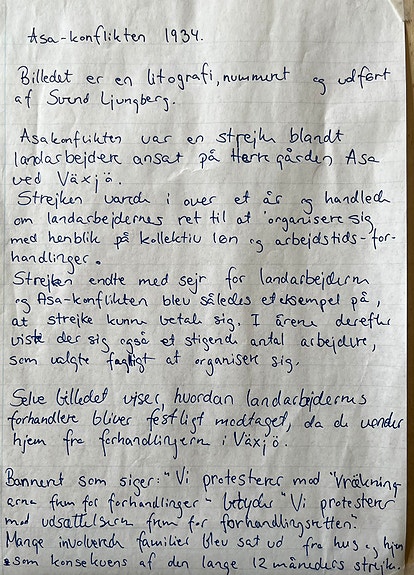 Asa-konflikten 1934.
Billedet er en litografi, nummert og udført
af Svend Ljungberg.
Asakonflikten var en strejke blandt
landarbejdere ansat på Herregården Asa
ved Växjö.
Strejken varede i over et år og handlede
om landarbejdernes ret til at organisere sig
med henblik på kollektiv løn og arbejdstids-for-
handlinger.
Strejken endte med sejr for landarbejderne
og Asa-konflikten blev således et eksempel på,
at strejke kunne betale sig. I årene derefter
viste der sig også et stigende antal arbejdere,
som valgte fagligt at organisere sig.
Selve billedet viser, hvordan landarbejdernes
forhandlere bliver festligt modtaget, da de vender
hjem fra forhandlingerne i Växjö.
Banneret som siger: "Vi protesterer mod "Vräkning
arna fram for forhandlinger" betyder "Vi protesterer
mod udsættelserne frem for forhandlingsretten".
Mange involverede familier blev sat ud fra hus og hjem
som konsekvens af den lange 12 måneders strejke.